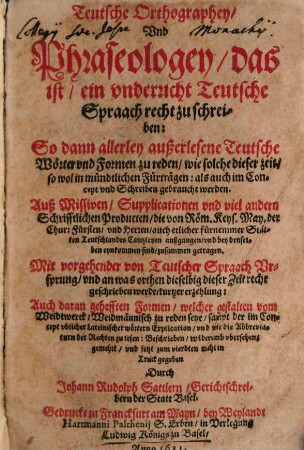 Teutsche Orthographey/
Vnd
Phraseologey/das
ist/ein vnderricht Teutsche
Spraach recht zu schrei-
ben:
So dann allerley außerlesene Teutsche
Wörter vnd Formen zu reden/wie solche dieser zeit/
so wol in mündtlichen Fürträgen: als auch im Con-
cept vnd Schreiben gebraucht werden.
Auß Missiven/Supplicationen vnd viel andern
Schrifftlichen Producten/die von Röm. Keys. May. der
Chur: Fürsten/vnd Herren/auch etlicher fürnemmer Stät-
ten Teutschlandes Cantzleyen außgangen/vnd bey densel-
ben eynkommen sind/zusammen getragen.
Mit vorgehender von Teutscher Spraach Vr-
sprung/vnd an was orthen dieselbig dieser Zeit recht
geschrieben werde/kurtzer erzehlung:
Auch daran gehefften Formen/welcher gestalten vom
Weidwerck/Weidmännisch zu reden seye/sampt der im Con-
cept vblicher lateinischer wörtern Explication/vnd wie die Abbrevia-
turn der Rechten zu lesen: Beschrieben/widerumb vbersehen/
gemehrt/vnd jetzt zum vierdten mahl in
Truck gegeben
Durch
Johann Rudolph Sattlern/Gerichtschrei-
bern der Statt Basel.
Gedruckt zu Franckfurt am Mayn/bey Weylandt
Hartmanni Palthenij S. Erben/in Verlegung
Ludwig Königs zu Basel/
Anno 1631